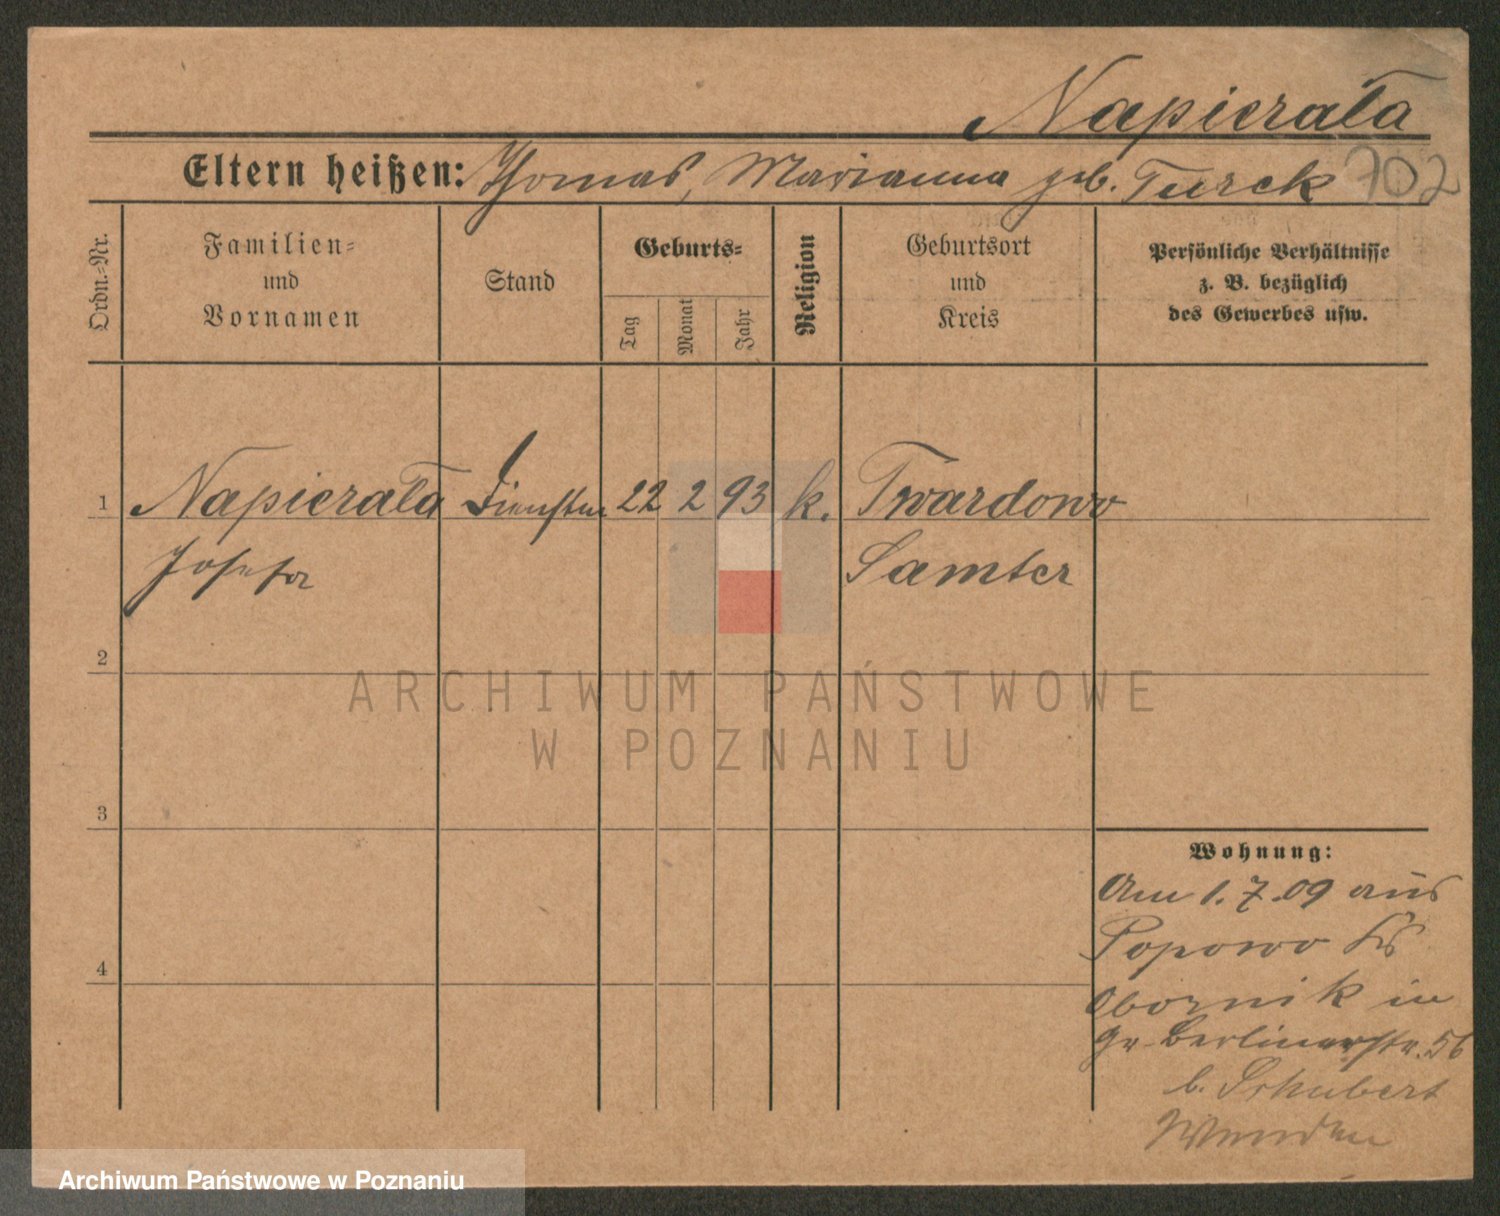 Napierała
Eltern heißen: Thomas, Marianna geb. Turek 702
Ordn.-Nr.
Familien-
und
Vornamen
Stand
Geburts-
Tag
Monat
Jahr
Religion
Geburtsort
und
Kreis
Persönliche Verhältnisse
z. B. bezüglich
des Gewerbes usw.
1 Napierała 22 2 93 k. Twardowo
Josefa Samter
2
3
4
Wohnung:
Am 1.7.09 aus
Popowo Krs
Obornik in
gr. Berlinerstr. 56
b. Schubert
ARCHIWUM PAŃSTWOWE
W POZNANIU
Archiwum Państwowe w Poznaniu